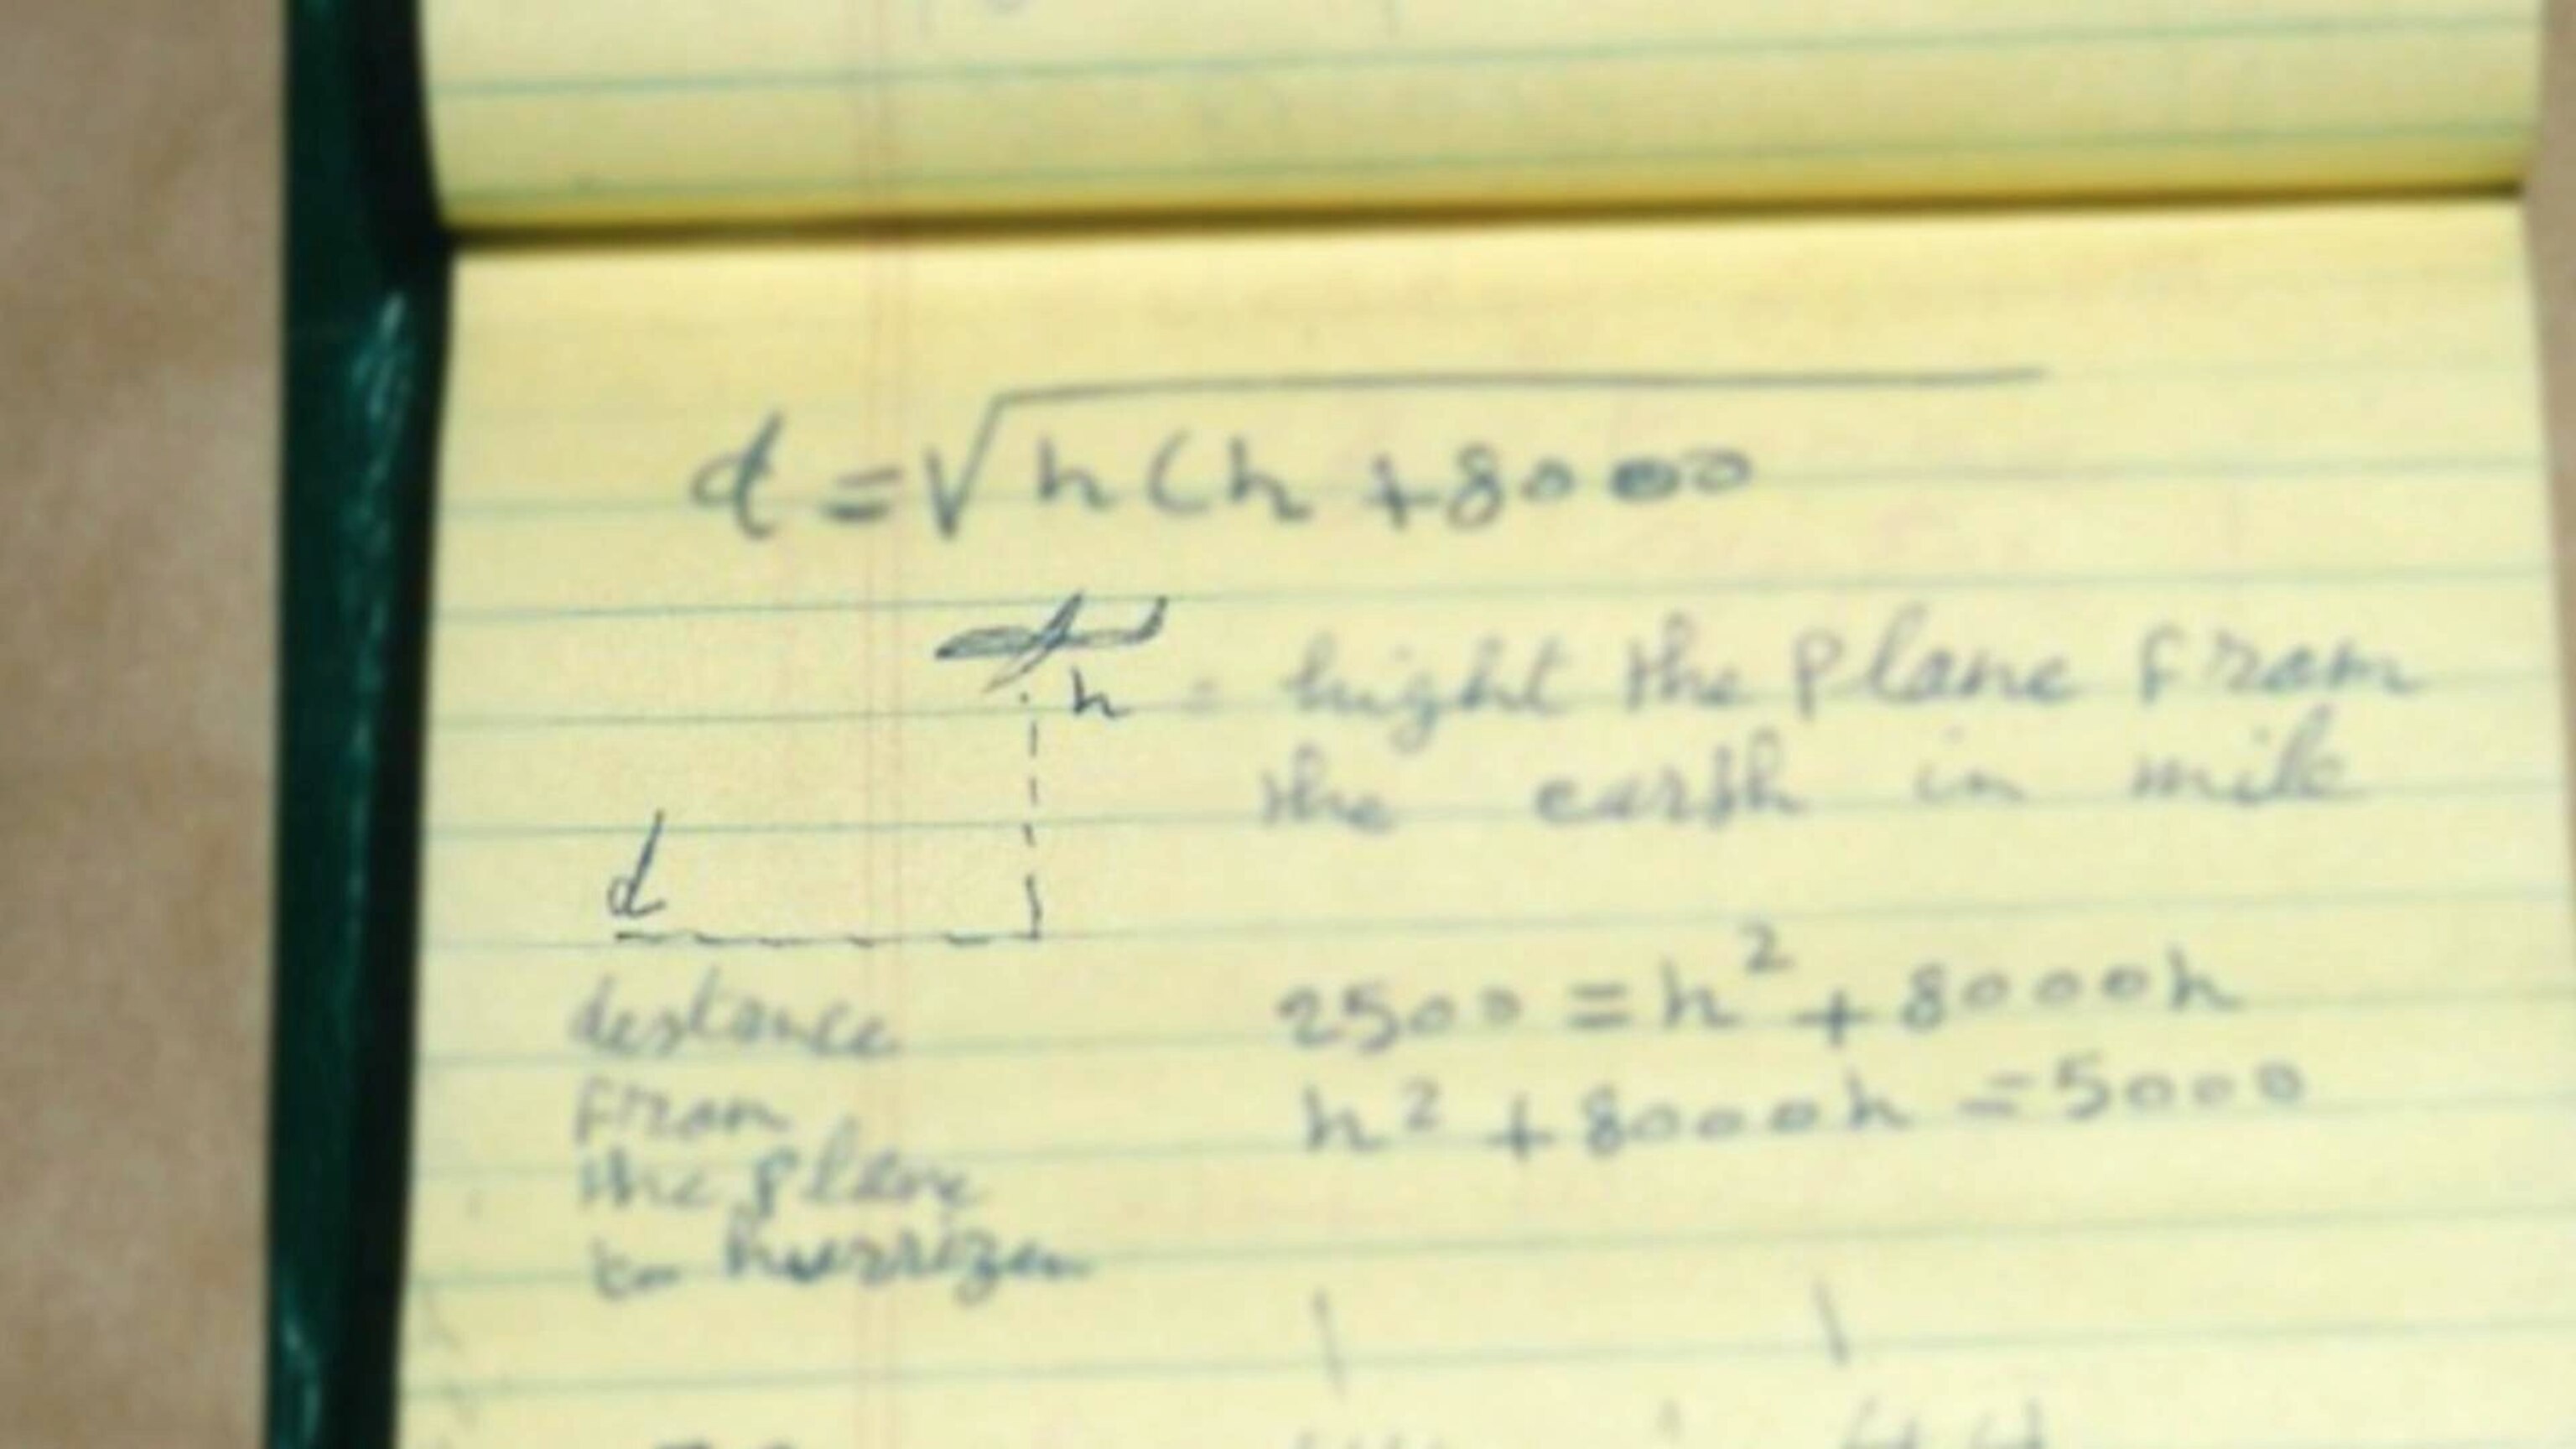 d = √h(h + 8000
h = hight the plane from
the earth in mile
d
destance
from
the plane
to horrizen
2500 = h² + 8000h
h² + 8000h = 5000